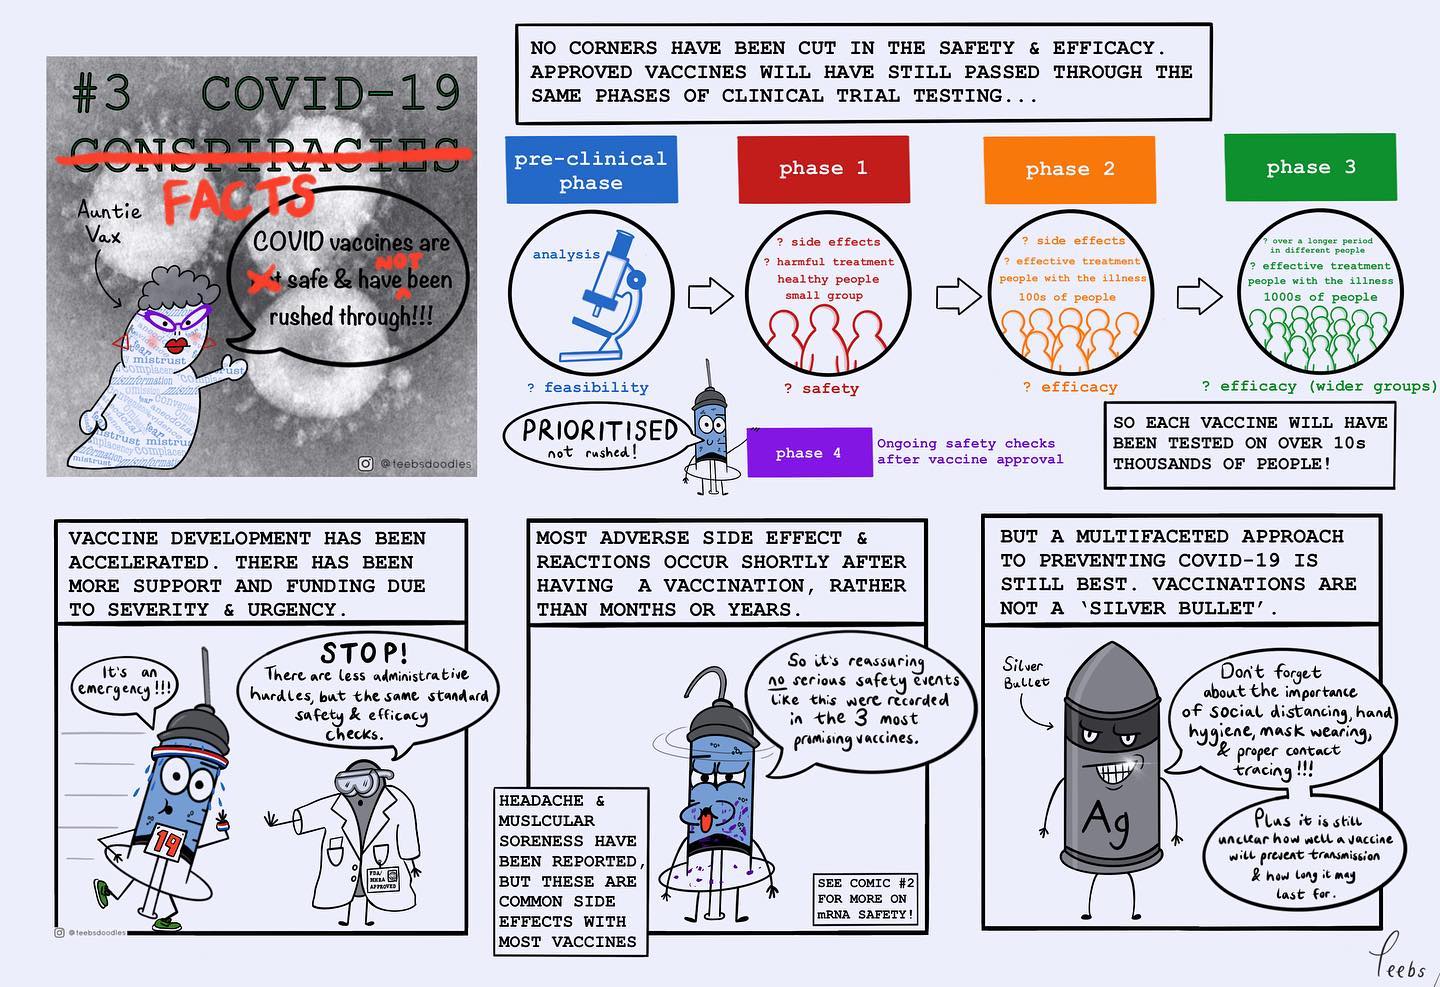 #3 COVID-19
CONSPIRACIES
FACTS
Auntie
Vax
COVID vaccines are
NOT
safe & have been
rushed through!!!
fear
mistrust
complacency
misinformation
anecdotal
mistrust
@teebsdoodles
NO CORNERS HAVE BEEN CUT IN THE SAFETY & EFFICACY.
APPROVED VACCINES WILL HAVE STILL PASSED THROUGH THE
SAME PHASES OF CLINICAL TRIAL TESTING...
pre-clinical
phase
analysis
? feasibility
phase 1
? side effects
? harmful treatment
healthy people
small group
? safety
phase 2
? side effects
? effective treatment
people with the illness
100s of people
? efficacy
phase 3
? over a longer period
in different people
? effective treatment
people with the illness
1000s of people
? efficacy (wider groups)
PRIORITISED
not rushed!
phase 4
Ongoing safety checks
after vaccine approval
SO EACH VACCINE WILL HAVE
BEEN TESTED ON OVER 10s
THOUSANDS OF PEOPLE!
VACCINE DEVELOPMENT HAS BEEN
ACCELERATED. THERE HAS BEEN
MORE SUPPORT AND FUNDING DUE
TO SEVERITY & URGENCY.
It's an
emergency!!!
STOP!
There are less administrative
hurdles, but the same standard
safety & efficacy
checks.
19
FDA/
MHRA
APPROVED
@teebsdoodles
MOST ADVERSE SIDE EFFECT &
REACTIONS OCCUR SHORTLY AFTER
HAVING A VACCINATION, RATHER
THAN MONTHS OR YEARS.
So it's reassuring
no serious safety events
like this were recorded
in the 3 most
promising vaccines.
HEADACHE &
MUSLCULAR
SORENESS HAVE
BEEN REPORTED,
BUT THESE ARE
COMMON SIDE
EFFECTS WITH
MOST VACCINES
SEE COMIC #2
FOR MORE ON
mRNA SAFETY!
BUT A MULTIFACETED APPROACH
TO PREVENTING COVID-19 IS
STILL BEST. VACCINATIONS ARE
NOT A ‘SILVER BULLET’.
Silver
Bullet
Ag
Don't forget
about the importance
of social distancing, hand
hygiene, mask wearing,
& proper contact
tracing!!!
Plus it is still
unclear how well a vaccine
will prevent transmission
& how long it may
last for.
Teebs